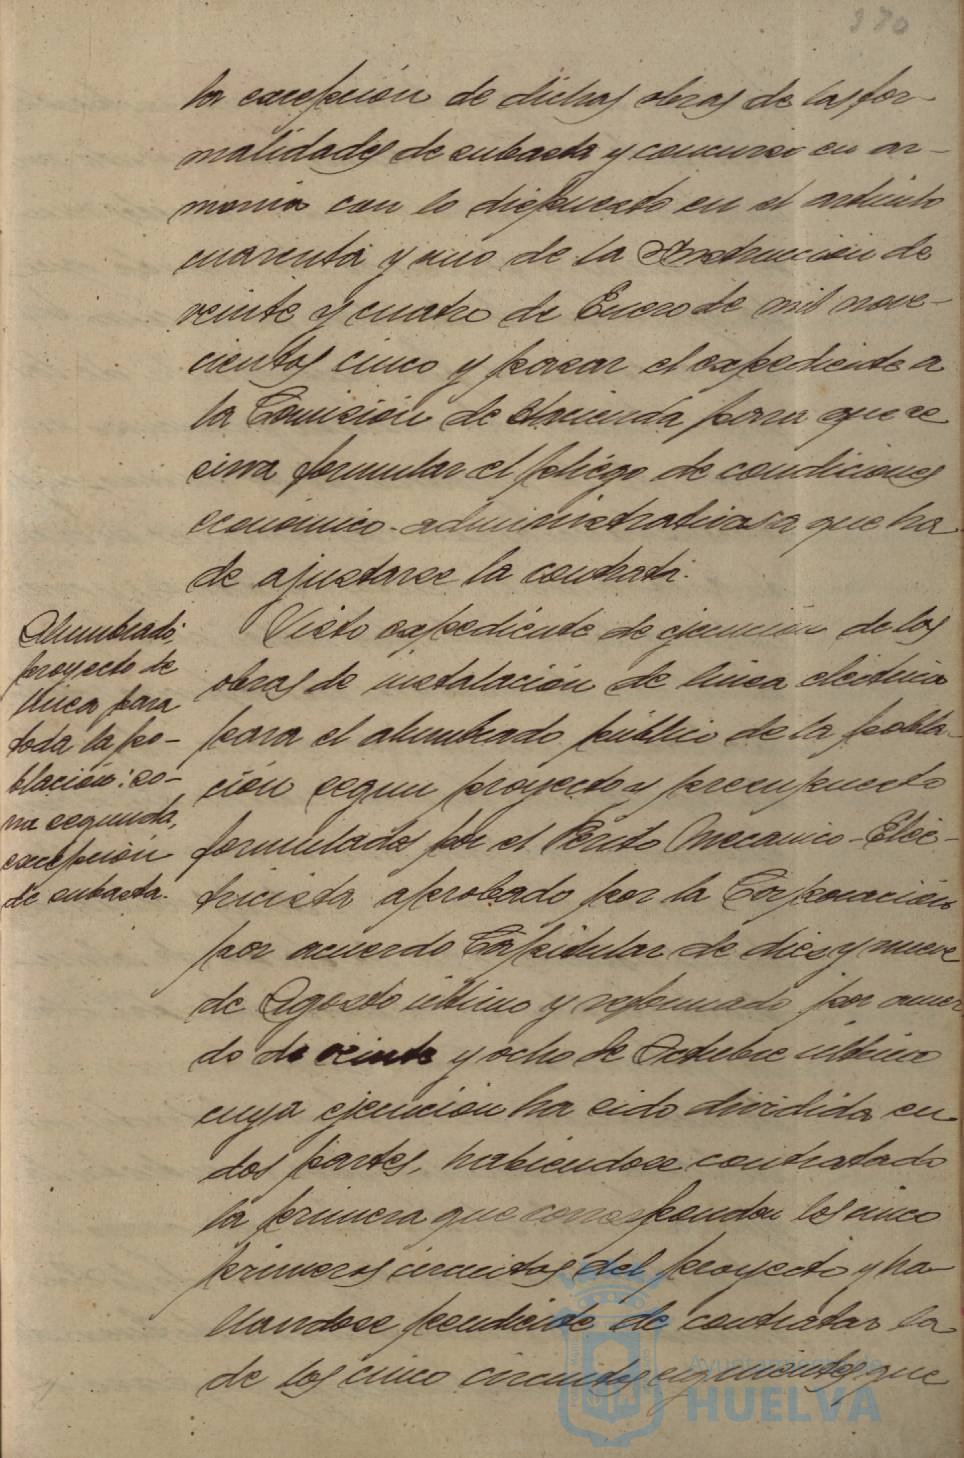 370
la excepción de dichas obras de las for-
malidades de subasta y concurso en ar-
monia con lo dispuesto en el articulo
cuarenta y uno de la Instruccion de
veinte y cuatro de Enero de mil nove-
cientos cinco y pasar el expediente a
la Comisión de Hacienda para que se
sirva formular el pliego de condiciones
economico-administrativas a que ha
de ajustarse la contrata.
Alumbrado,
proyecto de
linea para
toda la po-
blación: zo-
na segunda,
excepción
de subasta.
Visto expediente de ejecución de las
obras de instalación de linea electrica
para el alumbrado público de la pobla-
ción segun proyecto y presupuesto
formulado por el Perito Mecanico-Elec-
tricista aprobado por la Corporación
por acuerdo Capitular de diez y nueve
de Agosto último y reformado por acuer
do de veinte y ocho de Octubre último
cuya ejecución ha sido dividida en
dos partes, habiendose contratado
la primera que corresponden los cinco
primeros circuitos del proyecto y ha-
llandose pendiente de contratar la
de los cinco circuitos siguientes que
Ayuntamiento de
HUELVA